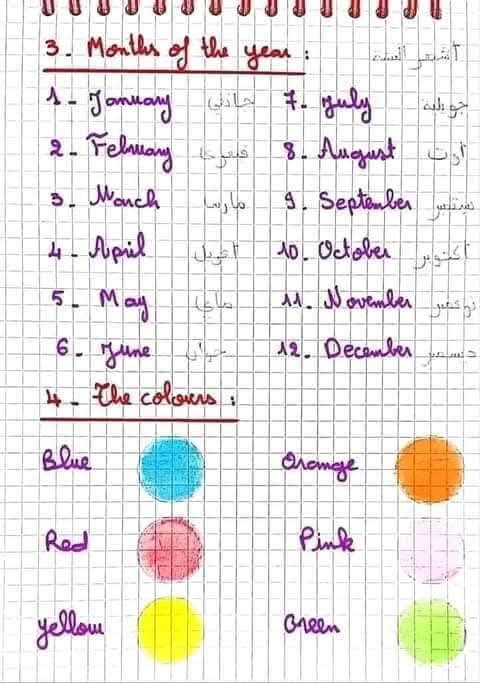 3 - Months of the year : أشهر السنة
1 - January جانفي 7 - July جويلية
2 - February فيفري 8 - August أوت
3 - March مارس 9 - September سبتمبر
4 - April أفريل 10 - October أكتوبر
5 - May ماي 11 - November نوفمبر
6 - June جوان 12 - December ديسمبر
4 - The colours :
Blue Orange
Red Pink
yellow Green